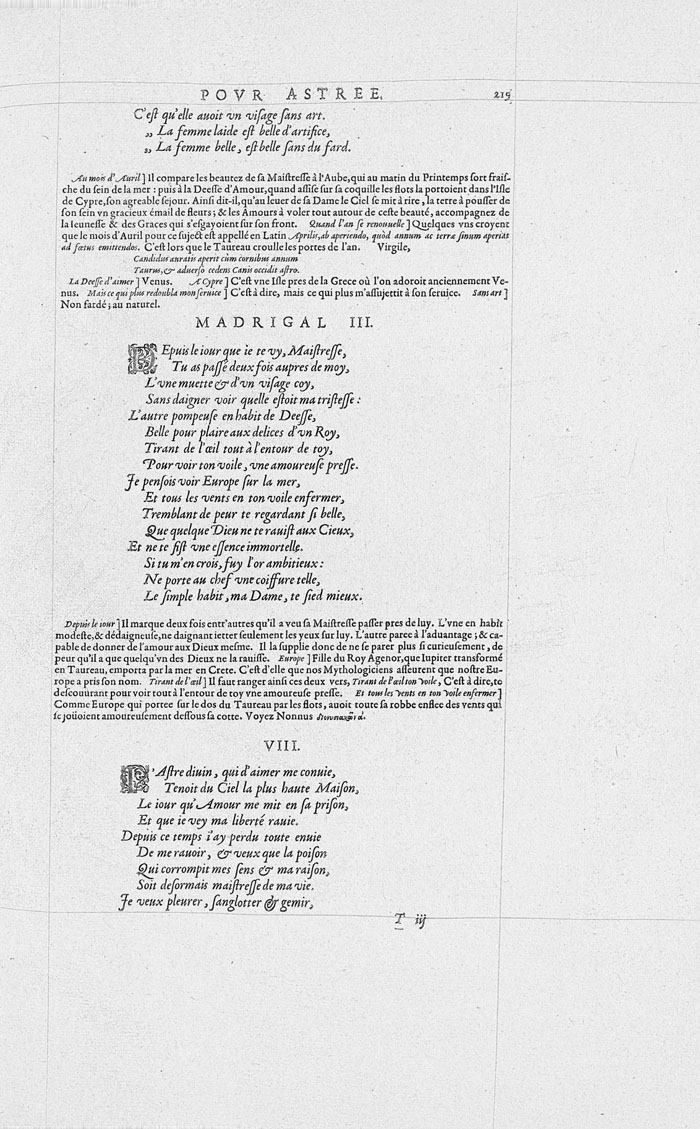 POVR ASTREE. 215
C'eſt qu'elle auoit vn viſage ſans art.
„ La femme laide eſt belle d'artifice,
„ La femme belle, eſt belle ſans du fard.
Au mois d'Auril] Il compare les beautez de ſa Maiſtreſſe à l'Aube, qui au matin du Printemps ſort fraiſ-
che du ſein de la mer : puis à la Deeſſe d'Amour, quand aſſiſe ſur ſa coquille les flots la portoient dans l'Iſle
de Cypre, ſon agreable ſejour. Ainſi dit-il, qu'au leuer de ſa Dame le Ciel ſe mit à rire, la terre à pouſſer de
ſon ſein vn gracieux émail de fleurs ; & les Amours à voler tout autour de ceſte beauté, accompagnez de
la Ieuneſſe & des Graces qui s'eſgayoient ſur ſon front. Quand l'an ſe renouuelle] Quelques vns croyent
que le mois d'Auril pour ce ſujeƈt eſt appellé en Latin Aprilis, ab aperiendo, quòd annum ac terræ ſinum aperiat
ad fœtus emittendos. C'eſt lors que le Taureau croulle les portes de l'an. Virgile,
Candidus auratis aperit cùm cornibus annum
Taurus, & aduerſo cedens Canis occidit aſtro.
La Deeſſe d'aimer] Venus. A Cypre] C'eſt vne Iſle pres de la Grece où l'on adoroit anciennement Ve-
nus. Mais ce qui plus redoubla mon ſeruice] C'eſt à dire, mais ce qui plus m'aſſujettit à ſon ſeruice. Sans art]
Non fardé ; au naturel.
MADRIGAL III.
DEpuis le iour que ie te vy, Maiſtreſſe,
Tu as paſſé deux fois aupres de moy,
L'vne muette & d'vn viſage coy,
Sans daigner voir quelle eſtoit ma triſteſſe :
L'autre pompeuſe en habit de Deeſſe,
Belle pour plaire aux delices d'vn Roy,
Tirant de l'œil tout à l'entour de toy,
Pour voir ton voile, vne amoureuſe preſſe.
Je penſois voir Europe ſur la mer,
Et tous les vents en ton voile enfermer,
Tremblant de peur te regardant ſi belle,
Que quelque Dieu ne te rauiſt aux Cieux,
Et ne te fiſt vne eſſence immortelle.
Si tu m'en crois, fuy l'or ambitieux :
Ne porte au chef vne coiffure telle,
Le ſimple habit, ma Dame, te ſied mieux.
Depuis le iour] Il marque deux fois entr'autres qu'il a veu ſa Maiſtreſſe paſſer pres de luy. L'vne en habit
modeſte, & dédaigneuſe, ne daignant ietter ſeulement les yeux ſur luy. L'autre paree à l'aduantage ; & ca-
pable de donner de l'amour aux Dieux meſme. Il la ſupplie donc de ne ſe parer plus ſi curieuſement, de
peur qu'il a que quelqu'vn des Dieux ne la rauiſſe. Europe] Fille du Roy Agenor, que Iupiter transformé
en Taureau, emporta par la mer en Crete. C'eſt d'elle que nos Mythologiciens aſſeurent que noſtre Eu-
rope a pris ſon nom. Tirant de l'œil] Il faut ranger ainſi ces deux vers, Tirant de l'œil ton voile, C'eſt à dire, te
deſcouurant pour voir tout à l'entour de toy vne amoureuſe preſſe. Et tous les vents en ton voile enfermer]
Comme Europe qui portee ſur le dos du Taureau par les flots, auoit toute ſa robbe enflee des vents qui
ſe joüoient amoureuſement deſſous ſa cotte. Voyez Nonnus
VIII.
L'Aſtre diuin, qui d'aimer me conuie,
Tenoit du Ciel la plus haute Maiſon,
Le iour qu'Amour me mit en ſa priſon,
Et que ie vey ma liberté rauie.
Depuis ce temps i'ay perdu toute enuie
De me rauoir, & veux que la poiſon
Qui corrompit mes ſens & ma raiſon,
Soit deſormais maiſtreſſe de ma vie.
Je veux pleurer, ſanglotter & gemir,
T iij